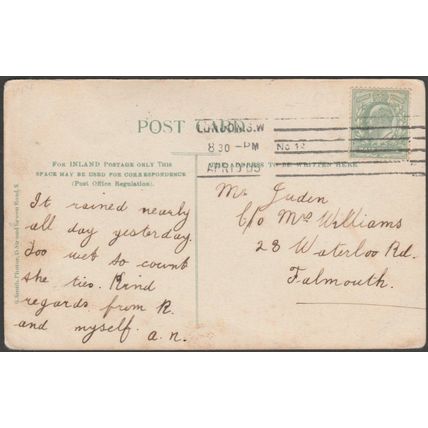 POST CARD
LONDON.S.W
8 30 - PM
APR 19 05
FOR INLAND POSTAGE ONLY THIS
SPACE MAY BE USED FOR CORRESPONDENCE
(Post Office Regulation).
THE ADDRESS TO BE WRITTEN HERE
It rained nearly
all day yesterday.
Too wet to count
the ties. Kind
regards from R.
and myself.
a.n.
Mr Juden
C/o Mrs Williams
28 Waterloo Rd.
Falmouth.